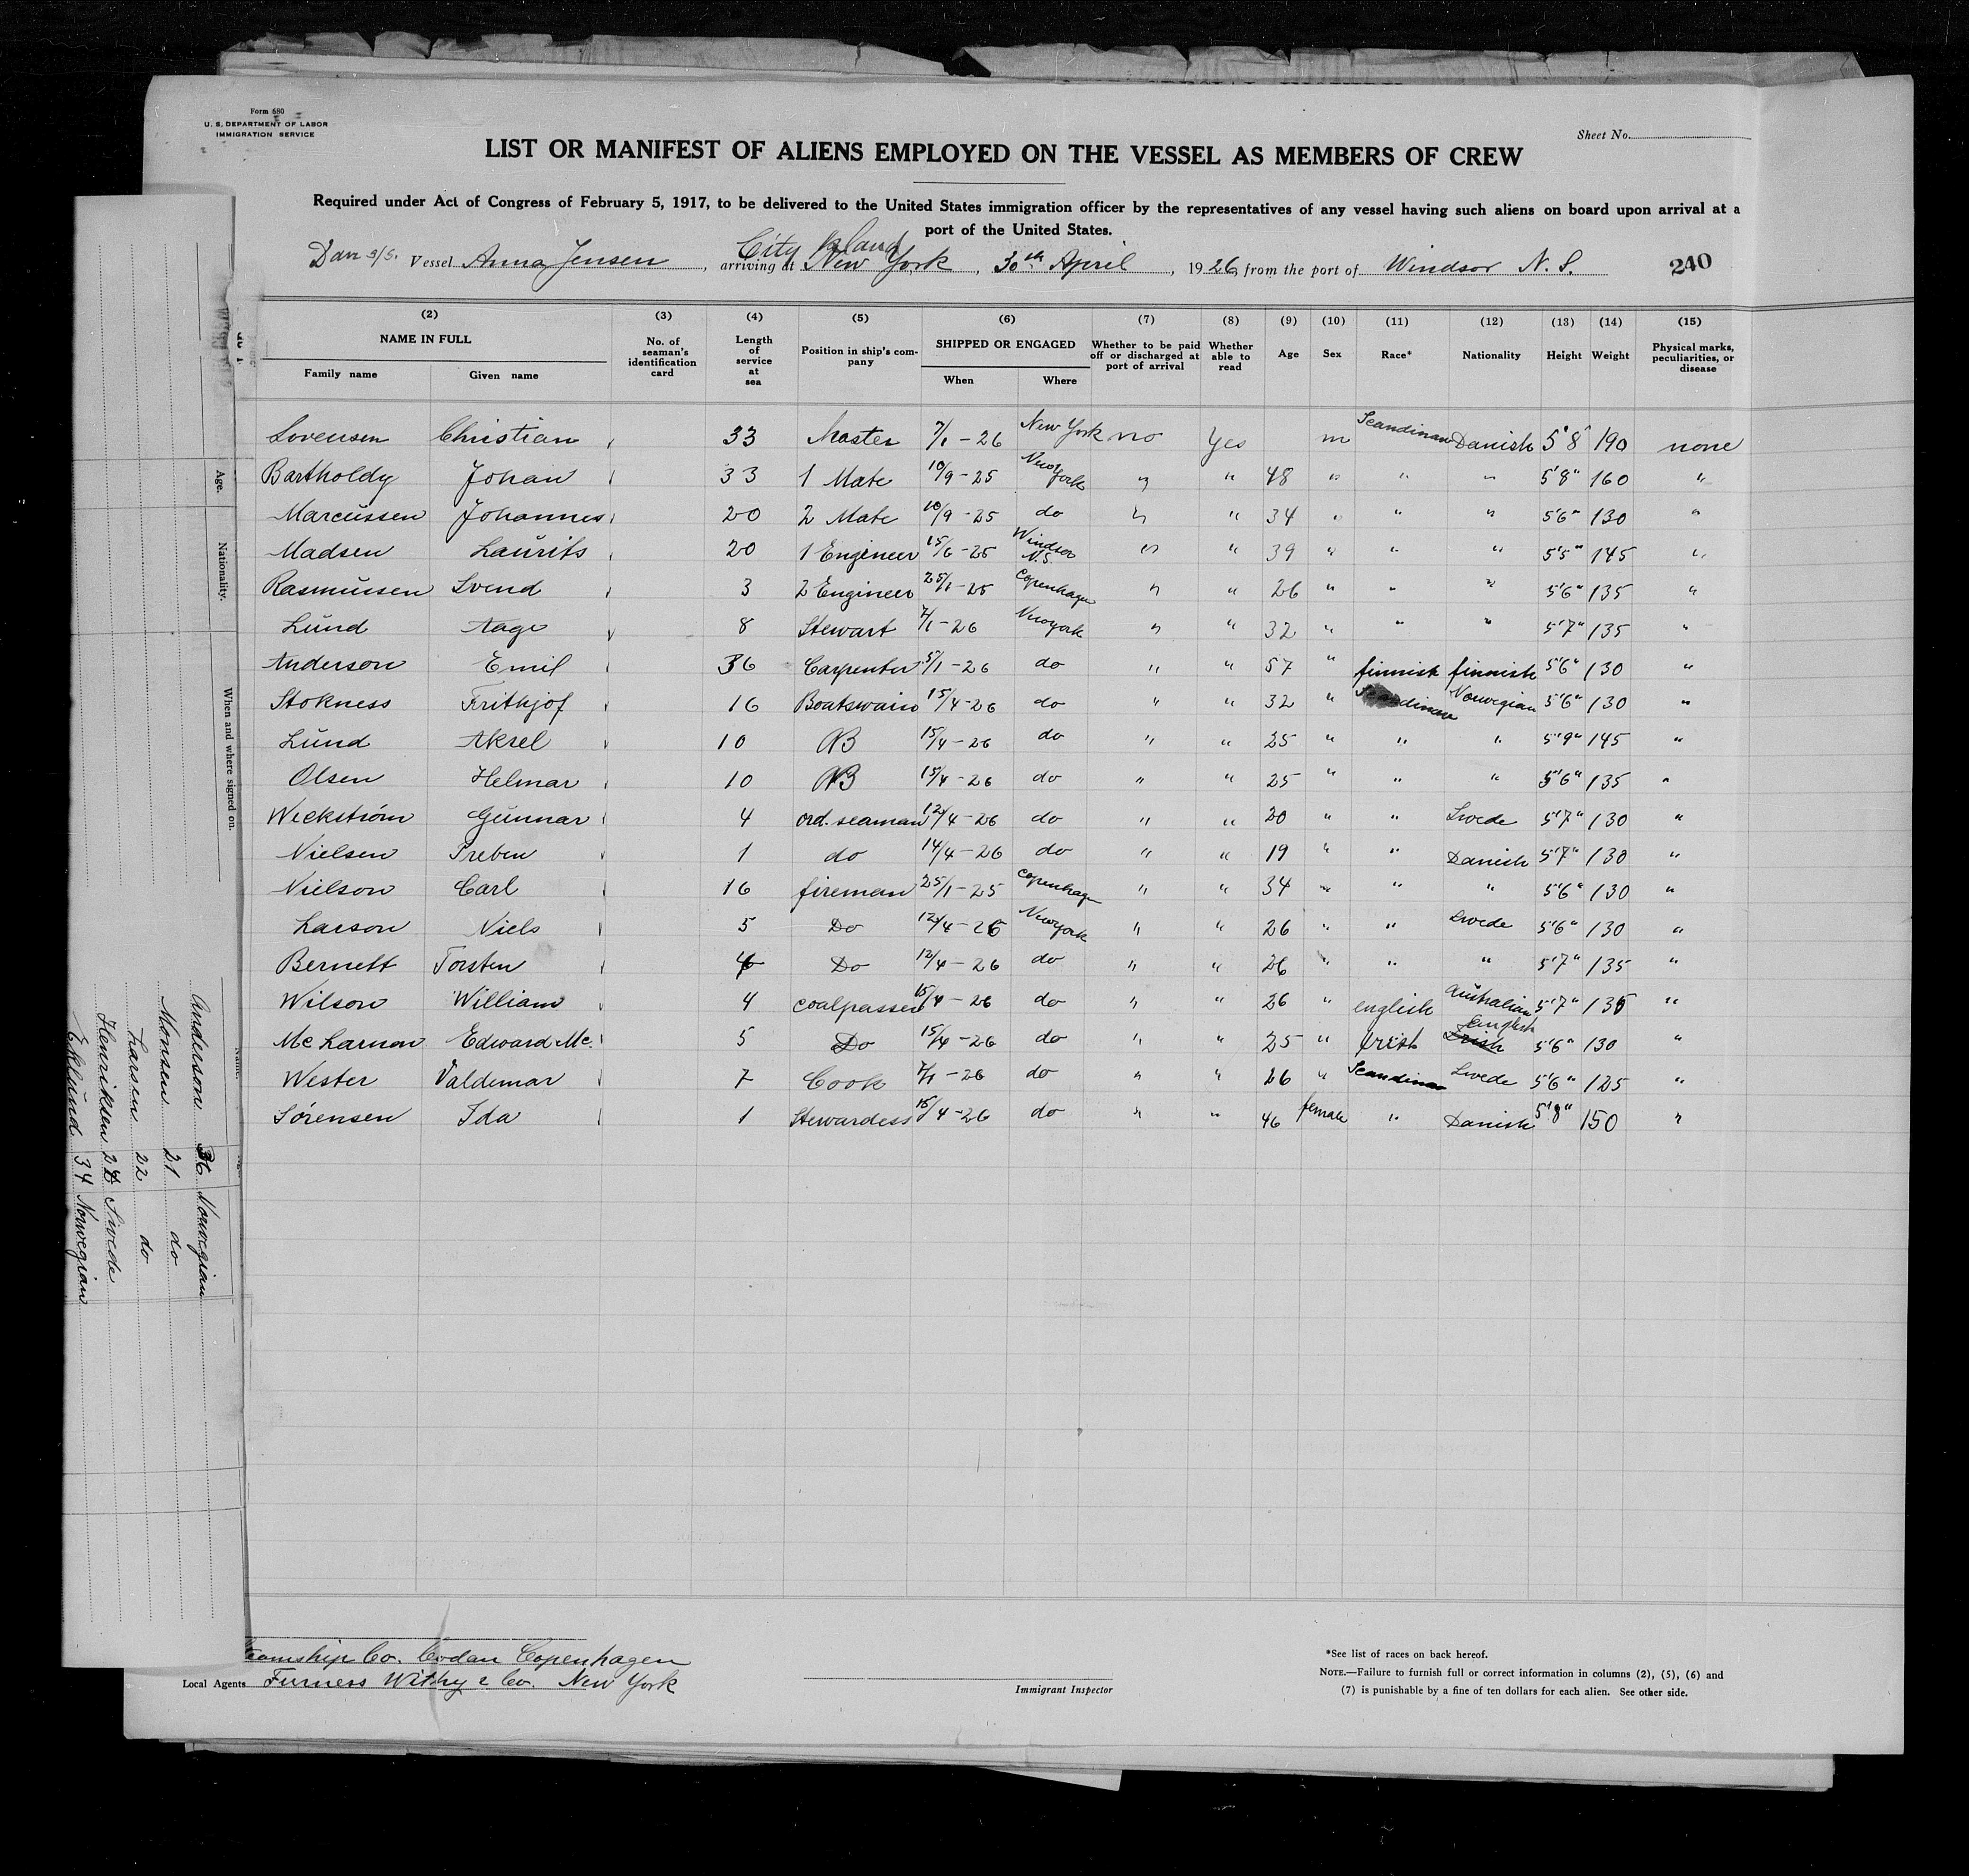 Form 680
U. S. DEPARTMENT OF LABOR
IMMIGRATION SERVICE
Sheet No.
LIST OR MANIFEST OF ALIENS EMPLOYED ON THE VESSEL AS MEMBERS OF CREW
Required under Act of Congress of February 5, 1917, to be delivered to the United States immigration officer by the representatives of any vessel having such aliens on board upon arrival at a
port of the United States.
City Island
Dan s/s. Vessel Anna Jensen, arriving at New York, 30th April, 1926, from the port of Windsor N. S. 240
(2) (3) (4) (5) (6) (7) (8) (9) (10) (11) (12) (13) (14) (15)
NAME IN FULL No. of seaman's identification card Length of service at sea Position in ship's company SHIPPED OR ENGAGED Whether to be paid off or discharged at port of arrival Whether able to read Age Sex Race* Nationality Height Weight Physical marks, peculiarities, or disease
Family name Given name When Where
Sorensen Christian 33 Master 7/1-26 New York no Yes m Scandinav Danish 5'8" 190 none
Bartholdy Johan 33 1 Mate 10/9-25 New York " " 48 " " " 5'6" 160 "
Marcussen Johannes 20 2 Mate 10/9-25 do " " 34 " " " 5'6" 130 "
Madsen Laurits 20 1 Engineer 15/6-25 Windsor N.S. " " 39 " " " 5'5" 145 "
Rasmussen Svend 3 2 Engineer 25/1-25 Copenhagen " " 26 " " " 5'6" 135 "
Lund Aage 8 Stewart 7/1-26 New york " " 32 " " " 5'7" 135 "
Anderson Emil 36 Carpenter 5/1-26 do " " 57 " finnish finnish 5'6" 130 "
Stokness Frithjof 16 Boatswain 15/4-26 do " " 32 " Scandinav Norwegian 5'6" 130 "
Lund Aksel 10 AB 15/4-26 do " " 25 " " " 5'9" 145 "
Olsen Helmar 10 AB 15/4-26 do " " 25 " " " 5'6" 135 "
Weckstrøm Gunnar 4 ord. seaman 12/4-26 do " " 20 " " Swede 5'7" 130 "
Nielsen Preben 1 do 14/4-26 do " " 19 " " Danish 5'7" 130 "
Nielson Carl 16 fireman 25/1-25 Copenhagen " " 34 " " " 5'6" 130 "
Larson Niels 5 Do 12/4-26 New york " " 26 " " Swede 5'6" 130 "
Bernett Torsten 4 Do 12/4-26 do " " 26 " " " 5'7" 135 "
Wilson William 4 coalpasser 15/4-26 do " " 26 " english Australian 5'7" 135 "
Mc Larnon Edward Mc. 5 Do 15/4-26 do " " 25 " Irish Irish English 5'6" 130 "
Wester Valdemar 7 Cook 7/1-26 do " " 26 " Scandinav Swede 5'6" 125 "
Sørensen Ida 1 Stewardess 15/4-26 do " " 46 female " Danish 5'8" 150 "
Age.
Nationality.
When and where signed on.
Name.
Anderson 36 Norwegian
Monsen 21 do
Larsen 22 do
Henriksen Swede
Eklund 34 Norwegian
Co. Codan Copenhagen
Local Agents Furness Withy & Co. New York
Immigrant Inspector
*See list of races on back hereof.
NOTE.—Failure to furnish full or correct information in columns (2), (5), (6) and
(7) is punishable by a fine of ten dollars for each alien. See other side.